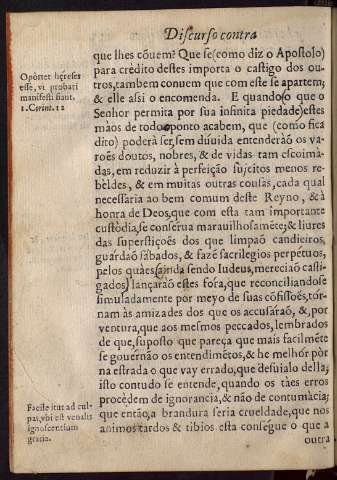 Discurso contra
que lhes cõuem? Que se (como diz o Apostolo)
para crèdito destes importa o castigo dos ou-
tros, tambem conuem que com este se apartem;
& elle assi o encomenda. E quando (o que o
Senhor permita por sua infinita piedade) estes
màos de todo o ponto acabem, que (como fica
dito) poderà ser, sem dúuida entenderáo os va-
roẽs doutos, nobres, & de vidas tam escoima-
das, em reduzir à perfeição sujeitos menos re-
bèldes, & em muitas outras cousas, cada qual
necessaria ao bem comum deste Reyno, & à
honra de Deos, que com esta tam importante
custòdia, se consérua marauilhosamẽte; & liures
das superstiçoẽs dos que limpaõ candieiros,
guardaõ sábados, & fazẽ sacrilegios perpétuos,
pelos quàes (ainda sendo Iudeus, mereciaõ casti-
gados) lançaraõ estes fóra, que reconciliandose
simuladamente por meyo de suas cõfissoẽs, tór-
nam às amizades dos que os accusaràõ, &, por
ventura, que aos mesmos peccados, lembrados
de que, suposto que pareça que mais facilmẽte
se gouérnão os entendimẽtos, & he melhor pòr
na estrada o que vay errado, que desuialo della;
isto contudo se entende, quando os tàes erros
procèdem de ignorancia, & não de contumàcia;
que então, a brandura seria crueldade, que nos
animos tardos & tibios esta conségue o que a
outra
Opòrtet hęreses
esse, vt probati
manifesti fiant.
1. Corint. 11
Facile itur ad cul-
pas, vbi est venalis
ignoscentium
gratia.